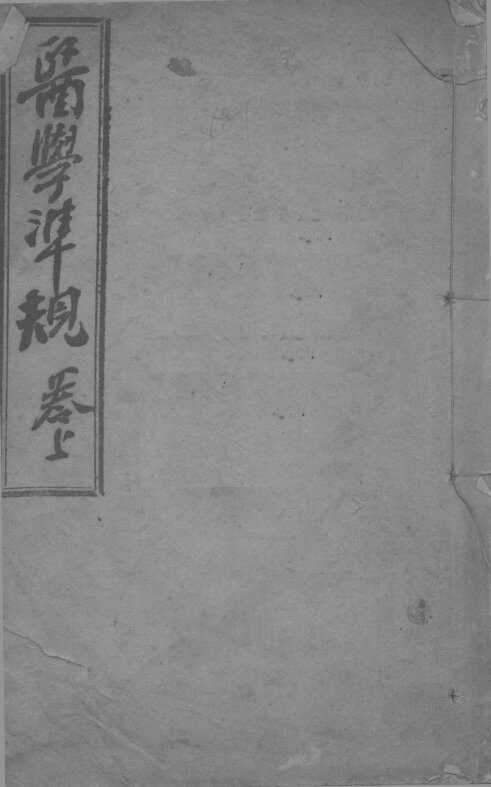 醫學準規 卷上